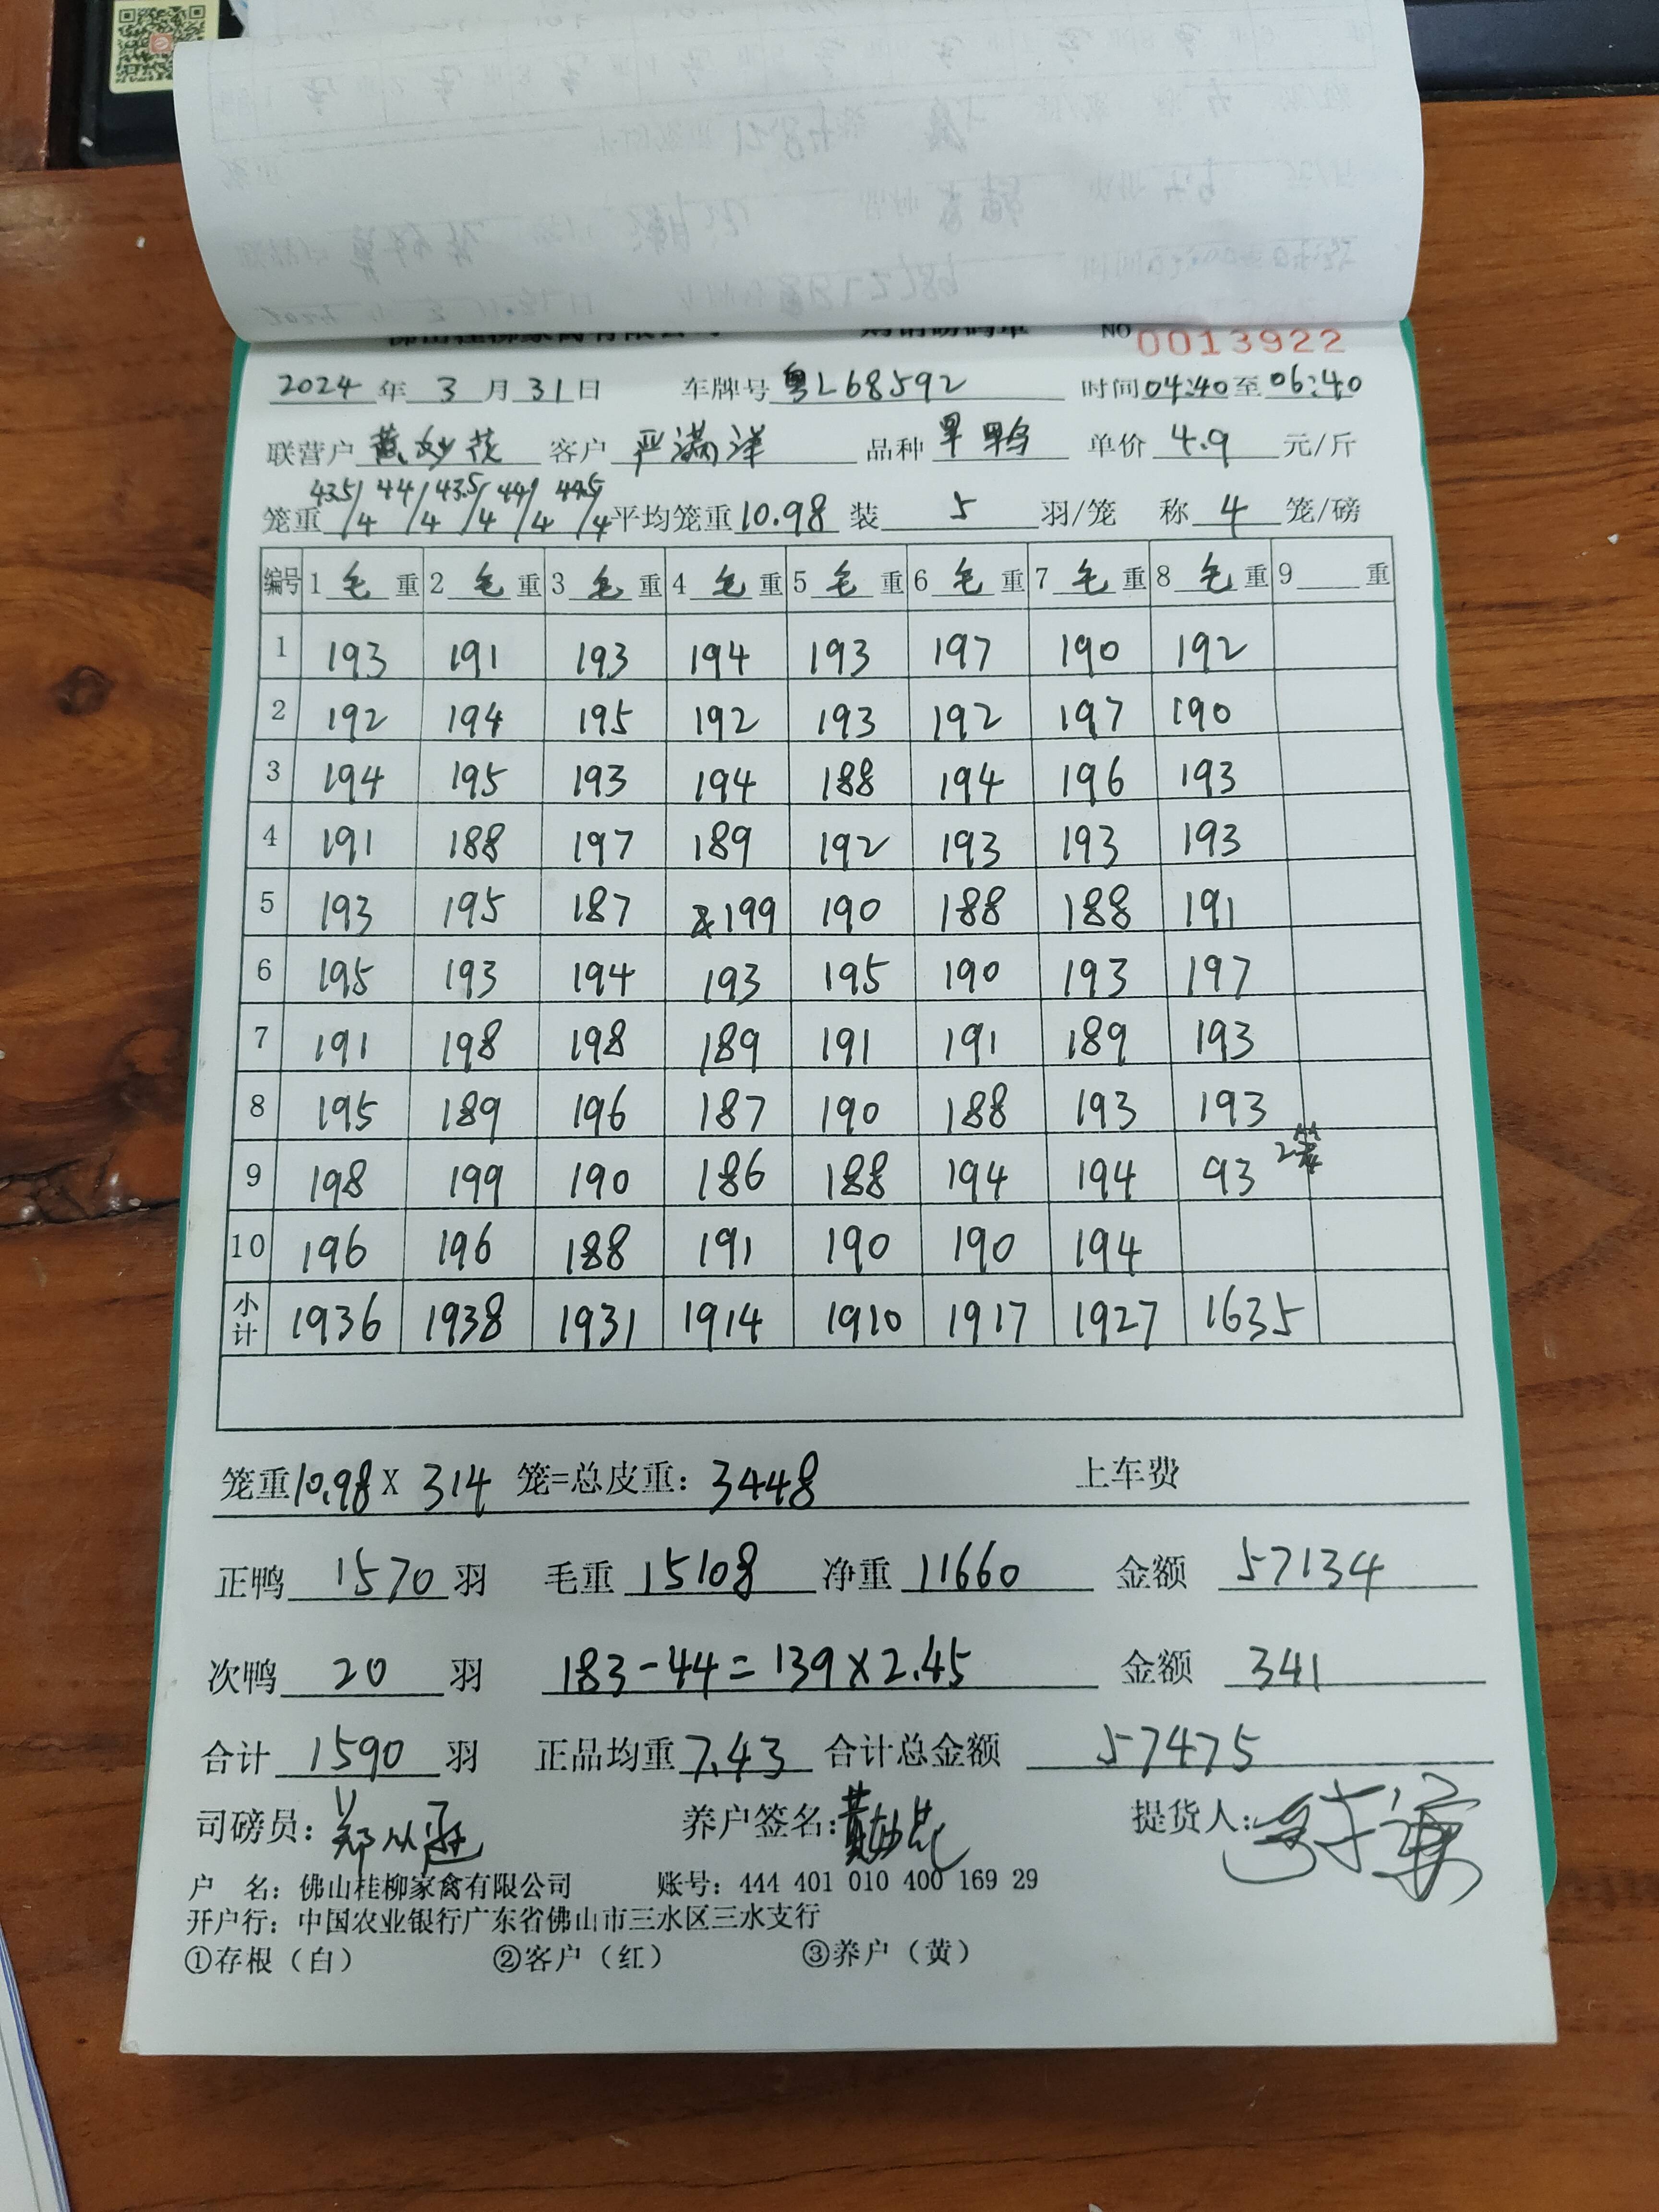 佛山桂柳家禽有限公司 购销磅码单 NO 0013922
2024 年 3 月 31 日 车牌号 粤L68592 时间 04:40 至 06:40
联营户 黄妙花 客户 严满洋 品种 旱鸭 单价 4.9 元/斤
笼重 43.5/4 44/4 43.5/4 44/4 44.5/4 平均笼重 10.98 装 5 羽/笼 称 4 笼/磅
编号 1 毛 重 2 毛 重 3 毛 重 4 毛 重 5 毛 重 6 毛 重 7 毛 重 8 毛 重 9 重
1 193 191 193 194 193 197 190 192
2 192 194 195 192 193 192 197 190
3 194 195 193 194 188 194 196 193
4 191 188 197 189 192 193 193 193
5 193 195 187 199 190 188 188 191
6 195 193 194 193 195 190 193 197
7 191 198 198 189 191 191 189 193
8 195 189 196 187 190 188 193 193
9 198 199 190 186 188 194 194 93 2笼
10 196 196 188 191 190 190 194
小计 1936 1938 1931 1914 1910 1917 1927 1635
笼重 10.98 X 314 笼=总皮重: 3448 上车费
正鸭 1570 羽 毛重 15108 净重 11660 金额 57134
次鸭 20 羽 183-44=139×2.45 金额 341
合计 1590 羽 正品均重 7.43 合计总金额 57475
司磅员: 养户签名: 黄妙花 提货人:
户 名: 佛山桂柳家禽有限公司 账号: 444 401 010 400 169 29
开户行: 中国农业银行广东省佛山市三水区三水支行
①存根（白） ②客户（红） ③养户（黄）